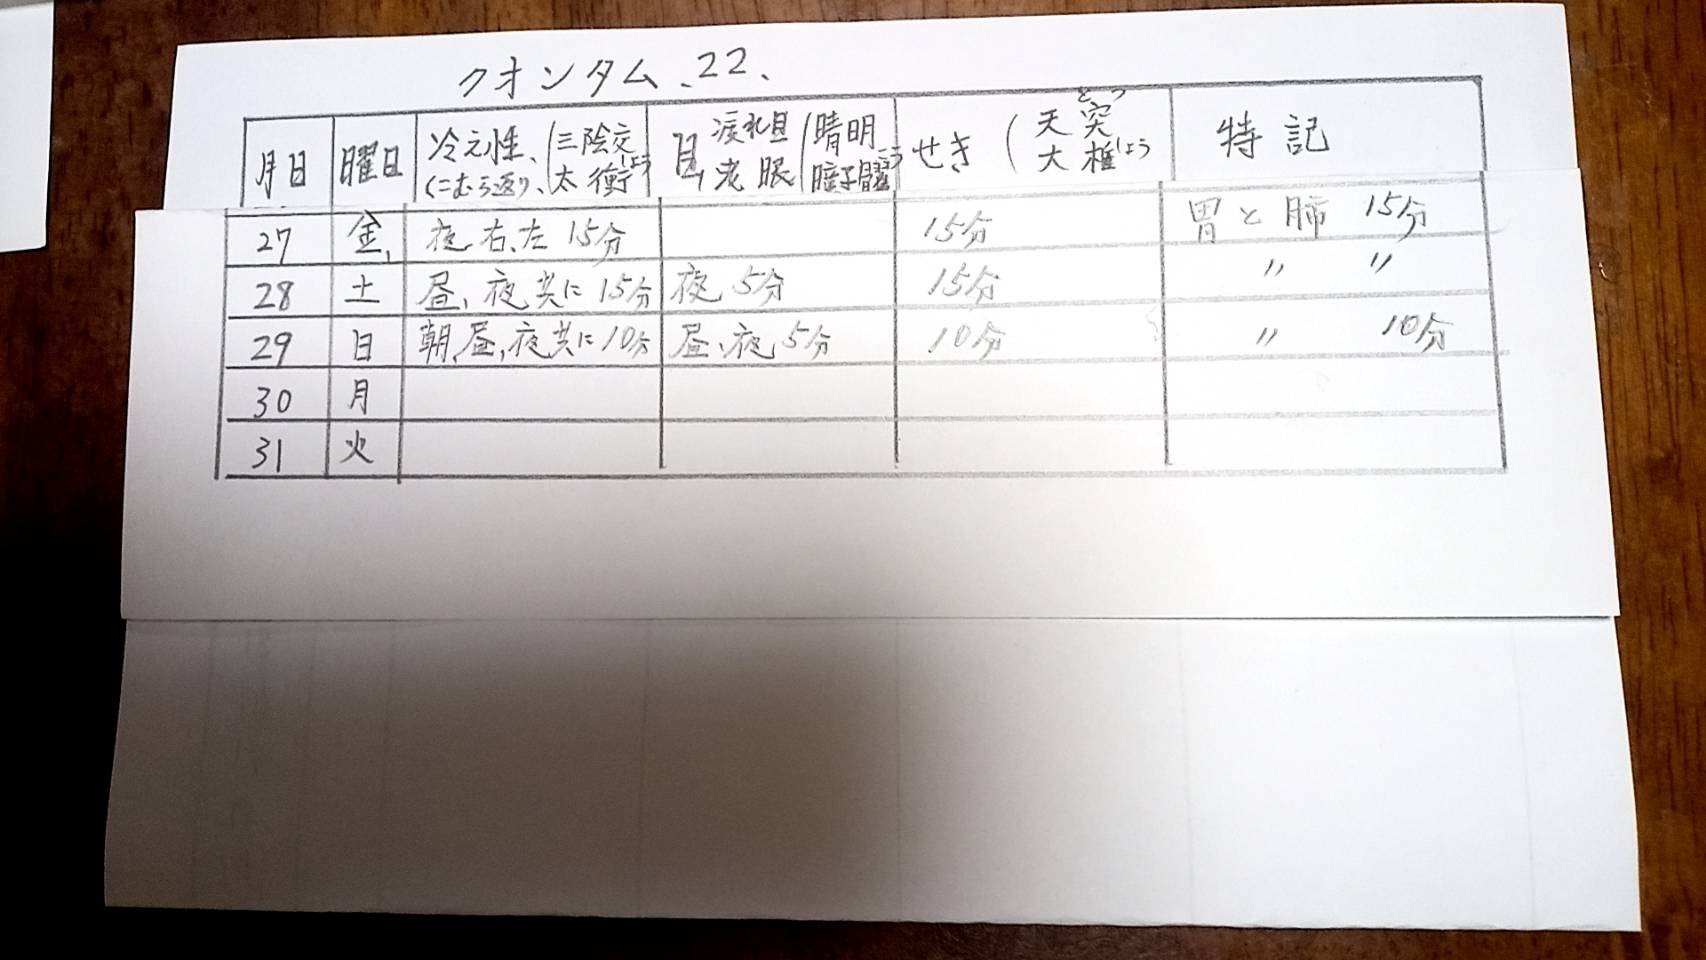 クオンタム、22、
月日 曜日 冷え性、(三陰交 目、涙れ目(晴明 せき(天突とつ 特記
(こむら返り)、太衝しょう 老眼 瞳子髎りょう 大椎
27 金、 夜右、左 15分 15分 胃と肺 15分
28 土 昼、夜共に 15分 夜 5分 15分 〃 〃
29 日 朝、昼、夜共に 10分 昼、夜 5分 10分 〃 10分
30 月
31 火